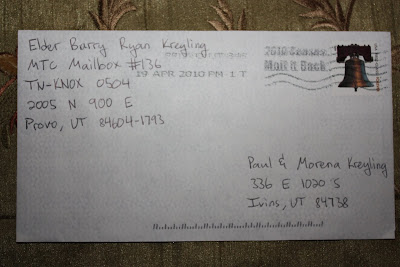 Elder Barry Ryan Kreyling
MTC Mailbox #136
TN-KNOX 0504
2005 N 900 E
Provo, UT 84604-1793
19 APR 2010 PM 1 T
2010 Census
Mail it Back
Paul & Morena Kreyling
336 E 1020 S
Ivins, UT 84738